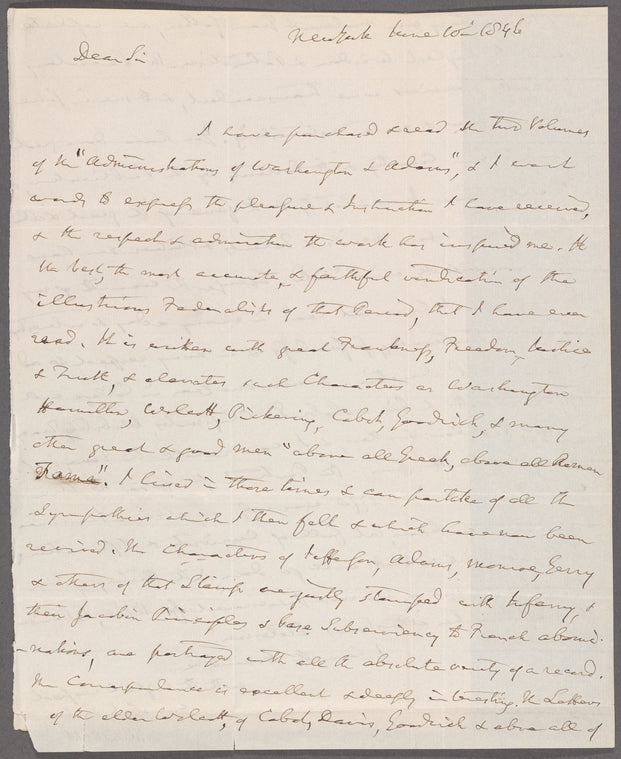 New York June 10th 1846
Dear Sir
I have purchased & read the two Volumes
of the "Administrations of Washington & Adams", & I want
words to express the pleasure & Instruction I have received,
& the respect & admiration the work has inspired me. It
the best, the most accurate, & faithful vindication of the
illustrious Federalists of that Period, that I have ever
read. It is written with great Frankness, Freedom, Justice
& Truth, & elevates such Characters as Washington
Hamilton, Wolcott, Pickering, Cabot, Goodrich, & many
other great & good men "above all Greek, above all Roman
Fame". I lived in those times & can partake of all the
Sympathies which I then felt & which have now been
revived. The Characters of Jefferson, Adams, Monroe, Gerry
& others of that Stamp are justly stamped with Infamy, &
their Jacobin Principles & base Subserviency to French abomi-
nations, are portrayed with all the absolute verity of a record.
The Correspondence is excellent & deeply interesting. The Letters
of the elder Wolcott, of Cabot, Davis, Goodrich & above all of